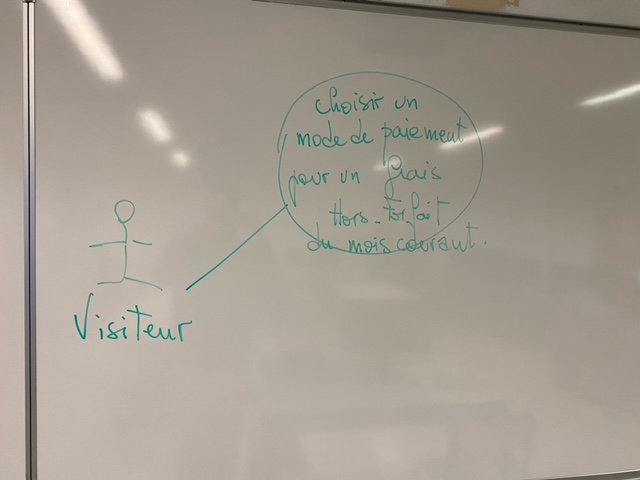 Choisir un
mode de paiement
pour un frais
Hors-Forfait
du mois courant.
Visiteur